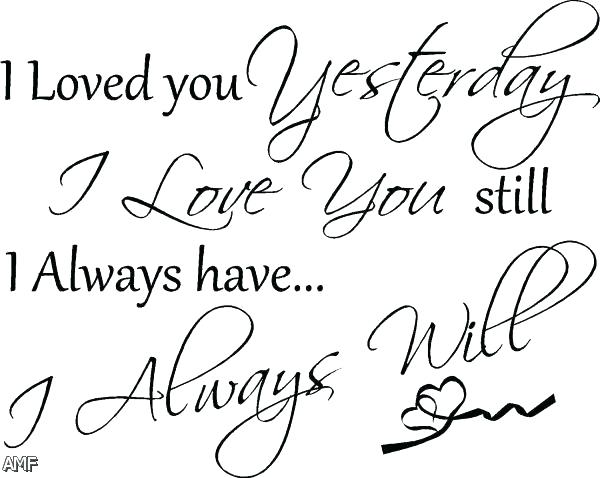 I Loved you Yesterday
I Love You still
I Always have...
I Always Will
AMF